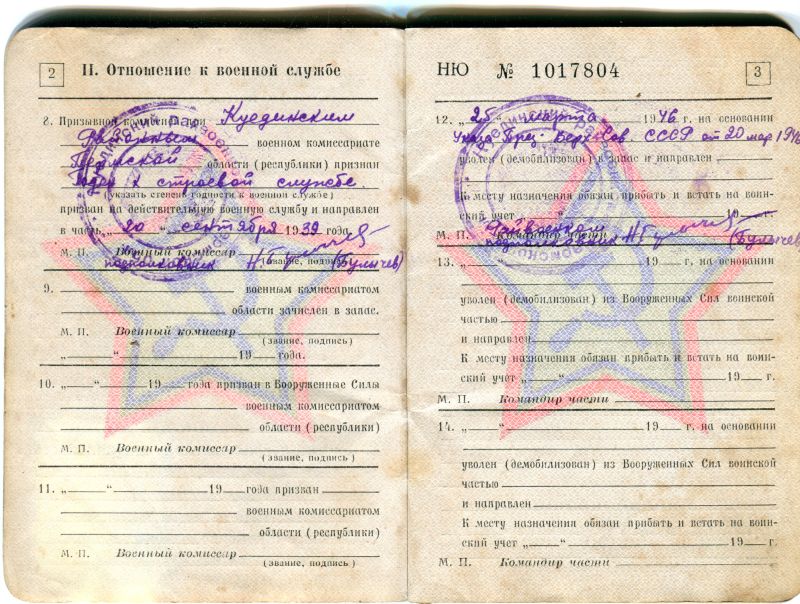 2
II. Отношение к военной службе
8. Призывной комиссией при Куединским
Районным военном комиссариате
Пермской области (республики) признан
Годен к строевой службе.
(указать степень годности к военной службе)
призван на действительную военную службу и направлен
в часть „20 “ сентября 1939 года.
М. П. Военный комиссар
(звание, подпись)
подполковник (Булычев)
9. военным комиссариатом
области зачислен в запас.
М. П. Военный комиссар
(звание, подпись)
„ “ 19 года.
10. „ “ 19 года призван в Вооруженные Силы
военным комиссариатом
области (республики)
М. П. Военный комиссар
(звание, подпись)
11. „ “ 19 года призван
военным комиссариатом
области (республики)
М. П. Военный комиссар
(звание, подпись)
НЮ № 1017804
3
12. „25 “ марта 1946 г. на основании
Указа През. Верх. Сов СССР от 20 мар 1946
уволен (демобилизован) в запас и направлен
К месту назначения обязан прибыть и встать на воин-
ский учет 19 г.
Райвоенком
М. П. Командир части
подполковник (Булычев)
13. „ “ 19 г. на основании
уволен (демобилизован) из Вооруженных Сил воинской
частью
и направлен
К месту назначения обязан прибыть и встать на воин-
ский учет „ “ 19 г.
М. П. Командир части
14. „ “ 19 г. на основании
уволен (демобилизован) из Вооруженных Сил воинской
частью
и направлен
К месту назначения обязан прибыть и встать на воин-
ский учет „ “ 19 г.
М. П. Командир части